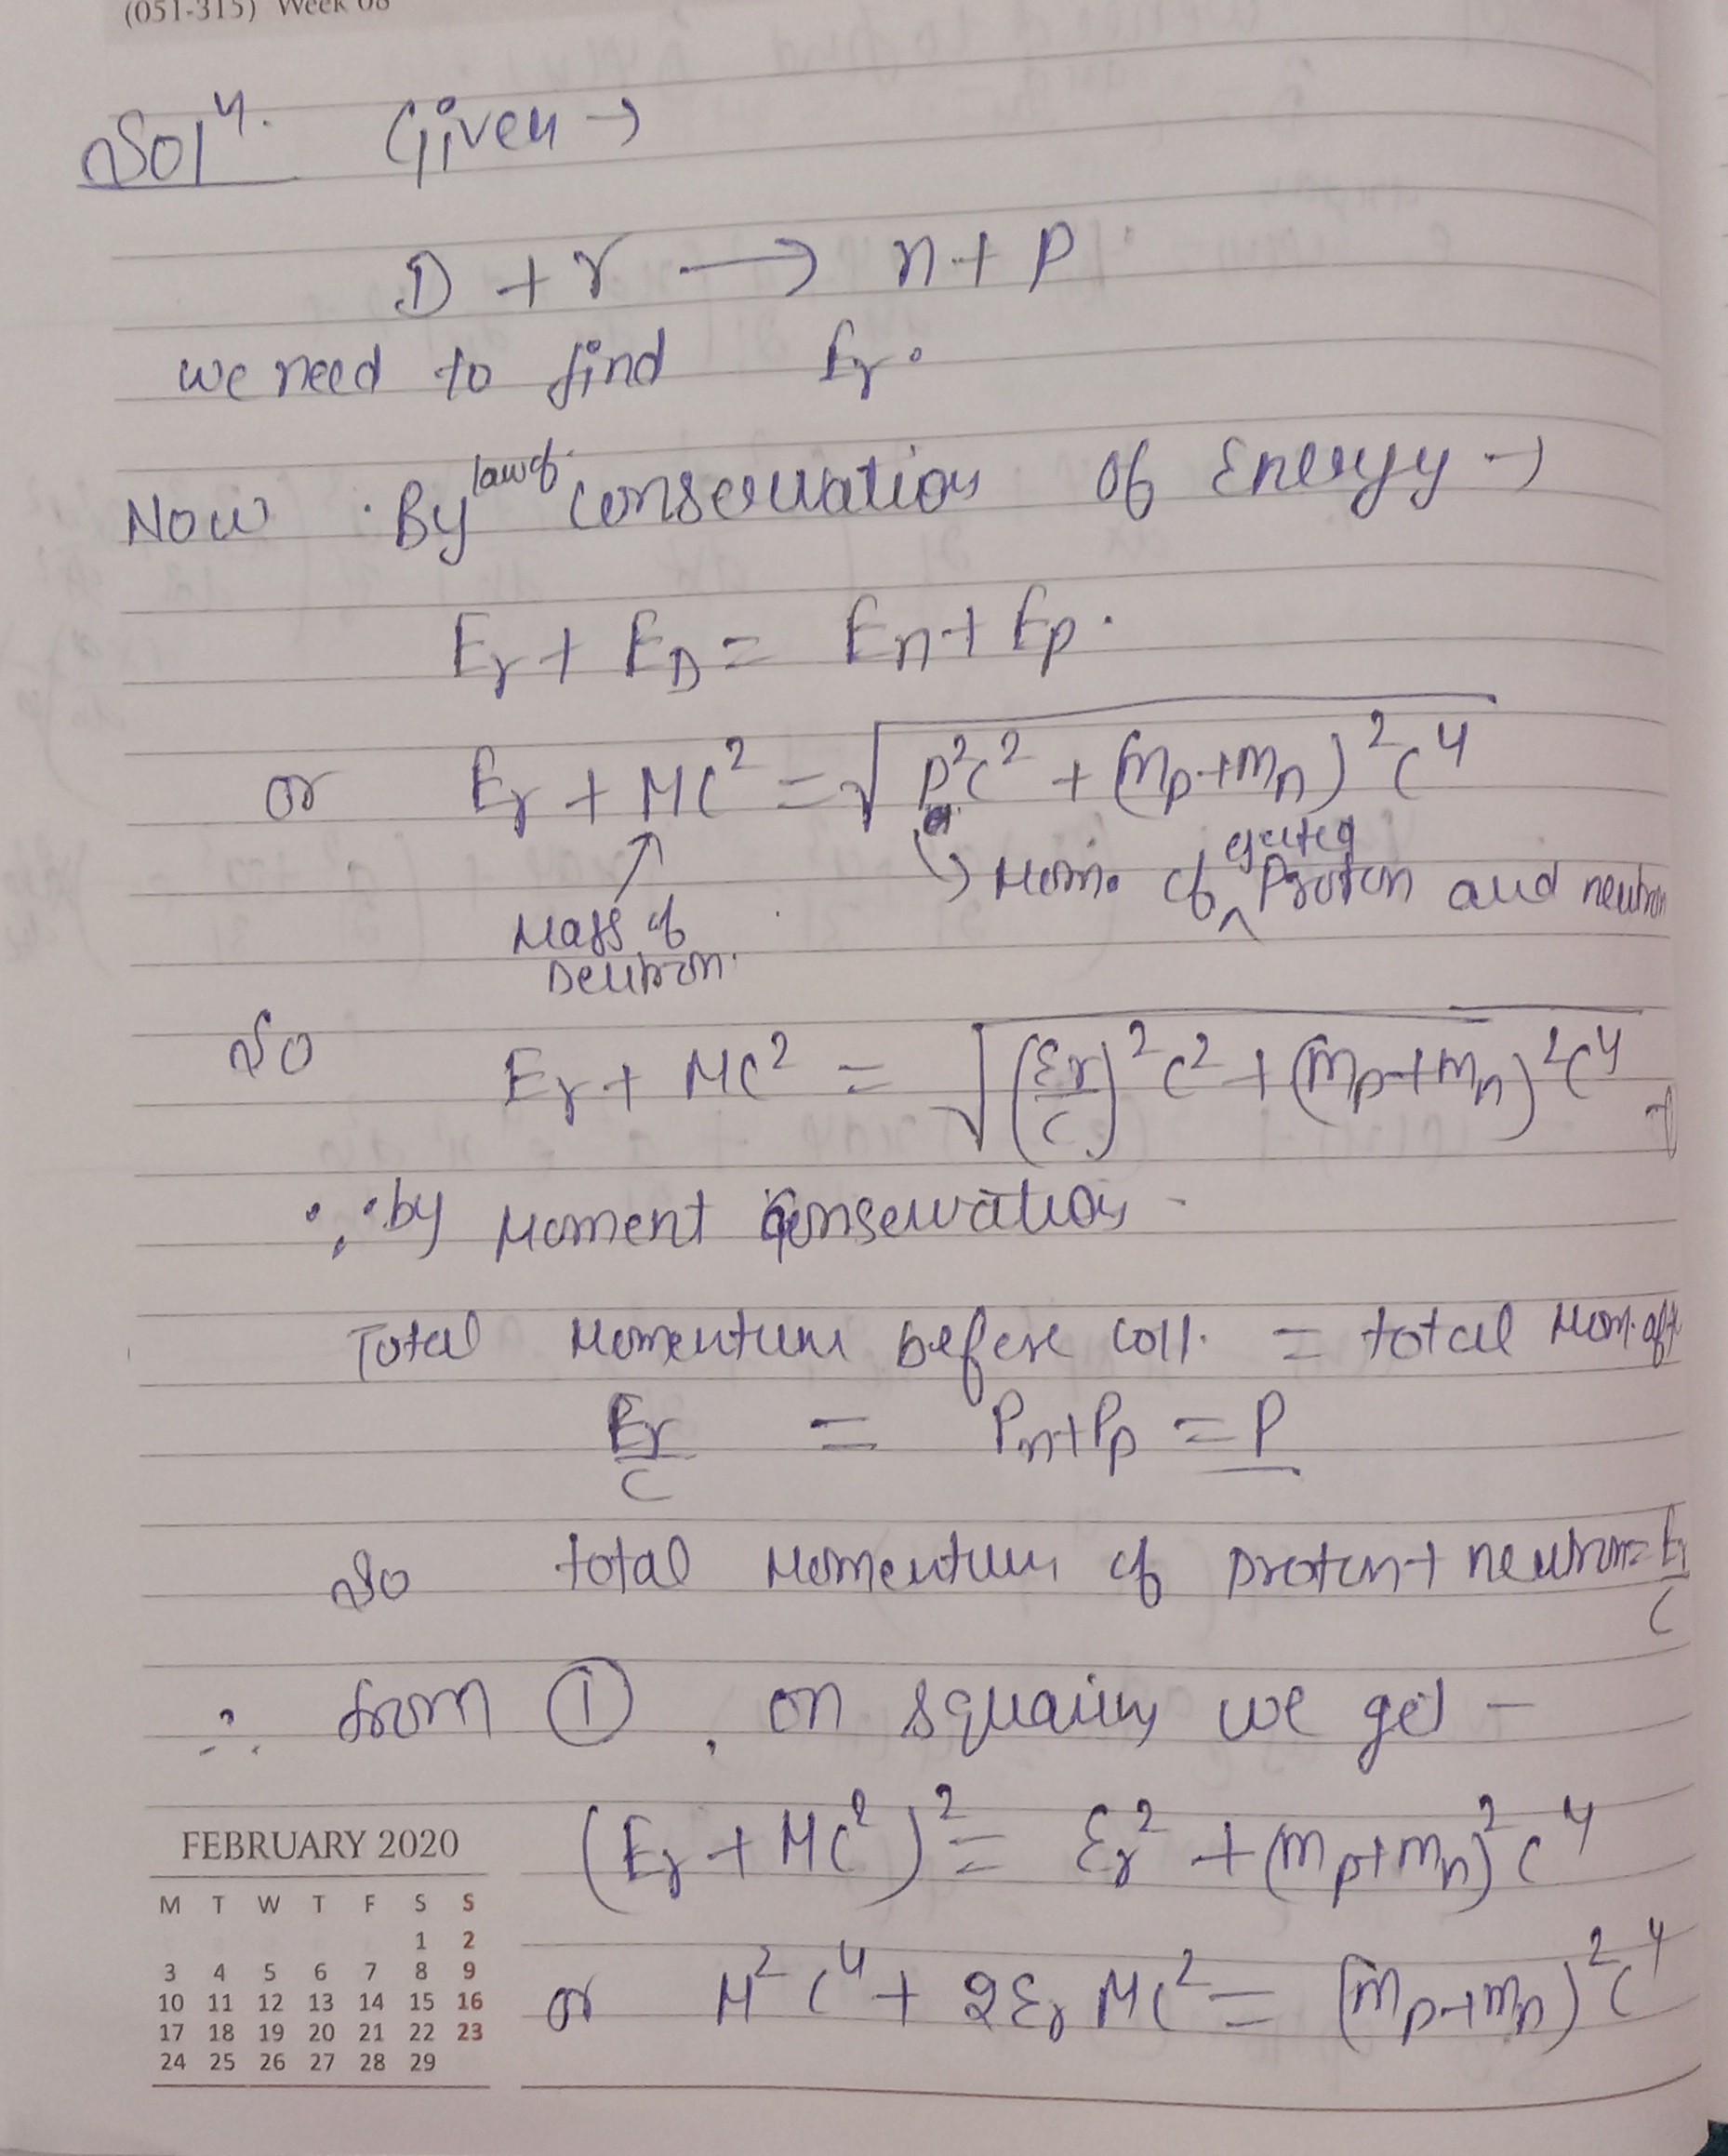 (051-315) Week 08
Solⁿ. Given →
D + γ → n + p.
we need to find Eγ.
Now . By law of conservation of Energy →
Eγ + E_D = En + Ep.
or Eγ + MC² = √(p²c² + (mp+mn)²c⁴)
↳ Mom. of ejected Proton and neutron
Mass of
Deutron.
So Eγ + MC² = √((Eγ/C)²c² + (mp+mn)²c⁴)
∵ by Moment Conservation -
Total Momentum before coll. = total Mom. aft
Eγ/C = Pn+Pp = P
So total Momentum of proton + neutron = Eγ/C
∴ from ①, on squaring we get –
(Eγ + MC²)² = Eγ² + (mp+mn)²c⁴
or M²C⁴ + 2EγMC² = (mp+mn)²c⁴
FEBRUARY 2020
M T W T F S S
1 2
3 4 5 6 7 8 9
10 11 12 13 14 15 16
17 18 19 20 21 22 23
24 25 26 27 28 29